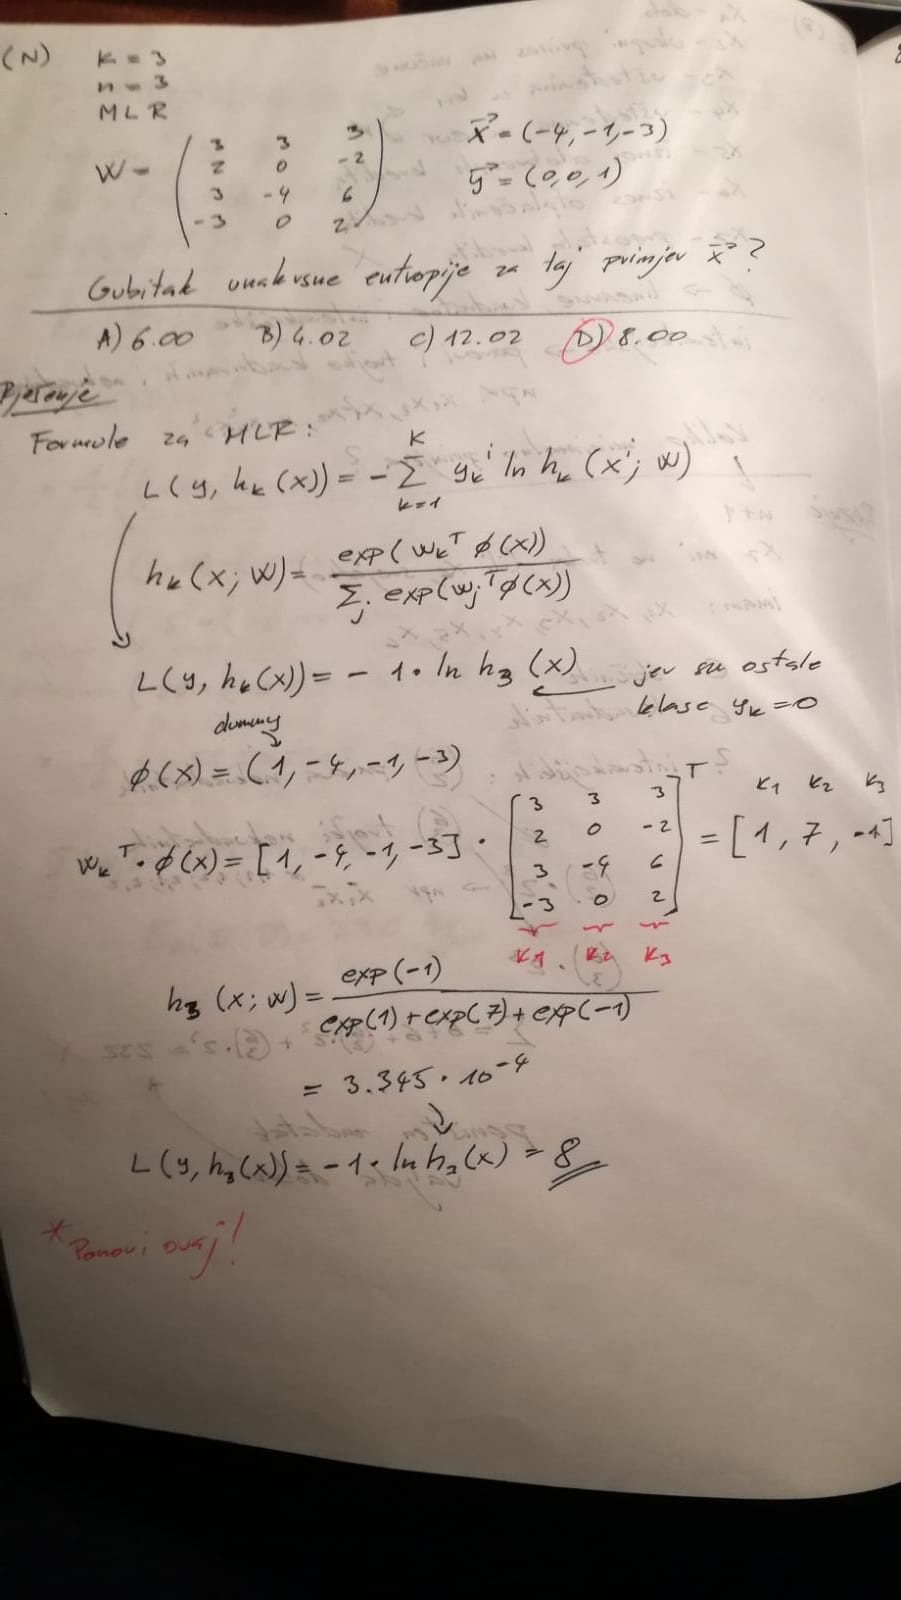 (N) K = 3
n = 3
MLR
W = ( 3 3 3
2 0 -2
3 -4 6
-3 0 2 )
x⃗ = (-4, -1, -3)
y⃗ = (0, 0, 1)
Gubitak unakrsne entropije za taj primjer x⃗ ?
A) 6.00 B) 4.02 C) 12.02 D) 8.00
Rješenje
Formule za MLR:
L(y, hk(x)) = - Σ_{k=1}^{K} yk^i ln hk (x^i; W)
hk(x; W) = exp(wk^T φ(x)) / Σ_j exp(wj^T φ(x))
L(y, hk(x)) = - 1 · ln h3 (x) ← jer su ostale
klase yk = 0
dummy
φ(x) = (1, -4, -1, -3)
wk^T · φ(x) = [1, -4, -1, -3] · [ 3 3 3
2 0 -2
3 -4 6
-3 0 2 ]^T = [1, 7, -1]
K1 K2 K3
K1 K2 K3
h3 (x; W) = exp(-1) / exp(1) + exp(7) + exp(-1)
= 3.345 · 10^-4
L(y, h3(x)) = - 1 · ln h3(x) = 8
* Ponovi ovaj!